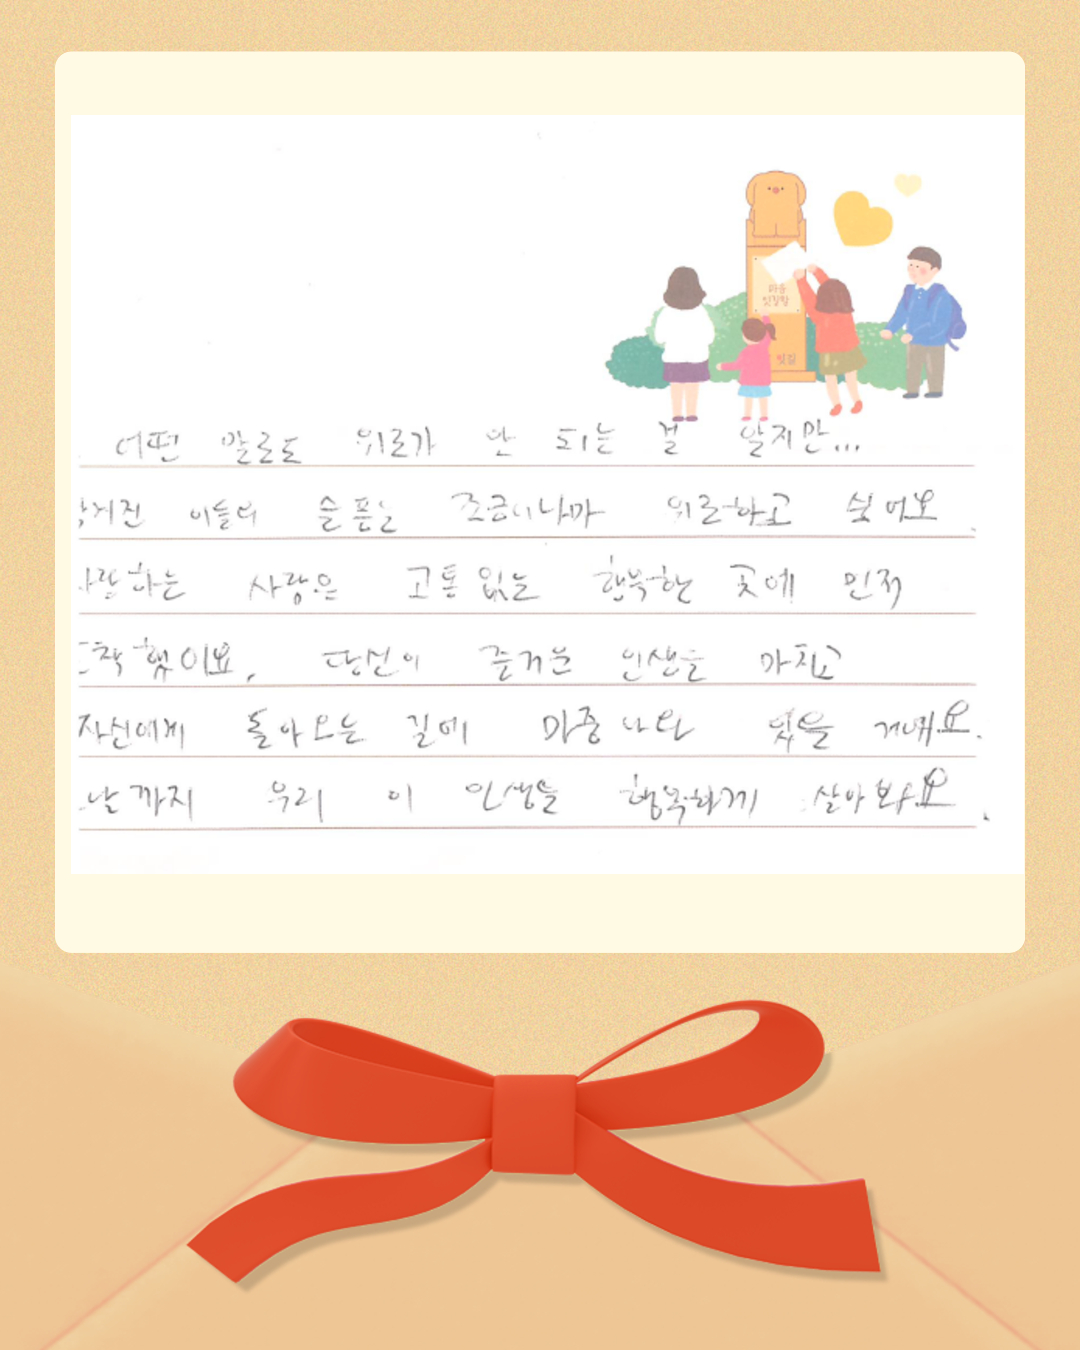 마음
잇길함
잇길
어떤 말로도 위로가 안 되는 걸 알지만...
남겨진 이들의 슬픔을 조금이나마 위로하고 싶어요.
사랑하는 사람은 고통 없는 행복한 곳에 먼저
도착했어요, 당신이 즐거운 인생을 마치고
자신에게 돌아오는 길에 마중 나와 있을 거예요.
그날까지 우리 이 인생을 행복하게 살아봐요.